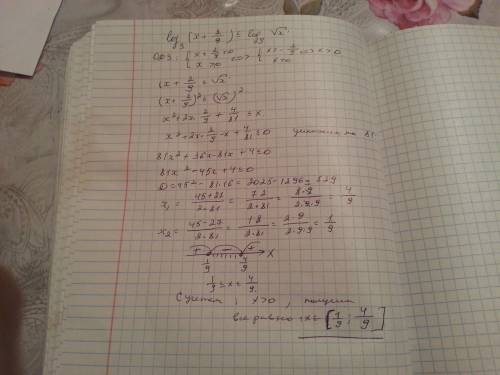 log₃ (x + 2/9) ≤ log₃ √x
ОДЗ: { x + 2/9 > 0 x > 0 <=> { x > -2/9 x > 0 <=> x > 0
(x + 2/9 ≤ √x
(x + 2/9)² ≤ (√x)²
x² + 2x · 2/9 + 4/81 ≤ x
x² + 2x · 2/9 - x + 4/81 ≤ 0 умножим на 81
81x² + 36x - 81x + 4 ≤ 0
81x² - 45x + 4 ≤ 0
D = 45² - 81·16 = 2025 - 1296 = 729
x₁ = 45+27 / 2·81 = 72 / 2·81 = 8·9 / 2·9·9 = 4/9
x₂ = 45-27 / 2·81 = 18 / 2·81 = 2·9 / 2·9·9 = 1/9
+ - + x
1/9 4/9
1/9 ≤ x ≤ 4/9
С учетом, x>0, получим
все равно x ∈ [1/9; 4/9]